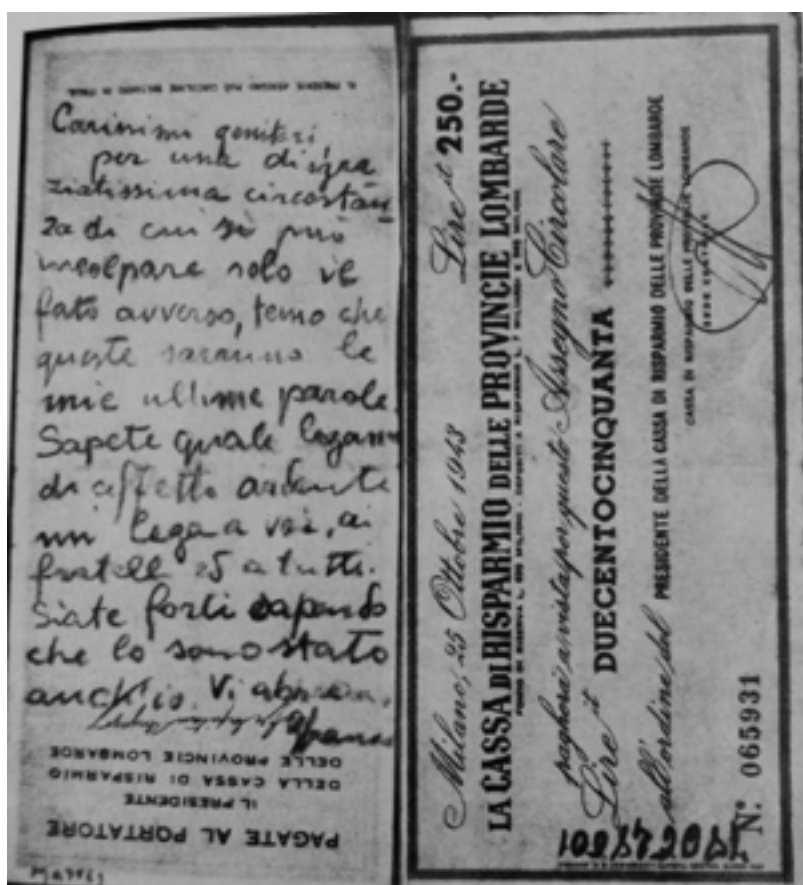 IL PRESENTE ASSEGNO PUÒ CIRCOLARE SOLTANTO IN ITALIA
Carissimi genitori
per una disgra
ziatissima circostan
za di cui si può
incolpare solo il
fato avverso, temo che
queste saranno le
mie ultime parole.
Sapete quale legame
di affetto ardente
mi lega a voi, ai
fratelli ed a tutti.
Siate forti sapendo
che lo sono stato
anch'io. Vi
PAGATE AL PORTATORE
IL PRESIDENTE
DELLA CASSA DI RISPARMIO
DELLE PROVINCIE LOMBARDE
Milano, 25 Ottobre 1943 Lire it 250.-
LA CASSA DI RISPARMIO DELLE PROVINCIE LOMBARDE
pagherà a vista per questo Assegno Circolare
Lire it DUECENTOCINQUANTA
all'ordine del PRESIDENTE DELLA CASSA DI RISPARMIO DELLE PROVINCIE LOMBARDE
CASSA DI RISPARMIO DELLE PROVINCIE LOMBARDE
SEDE CENTRALE
N: 065931